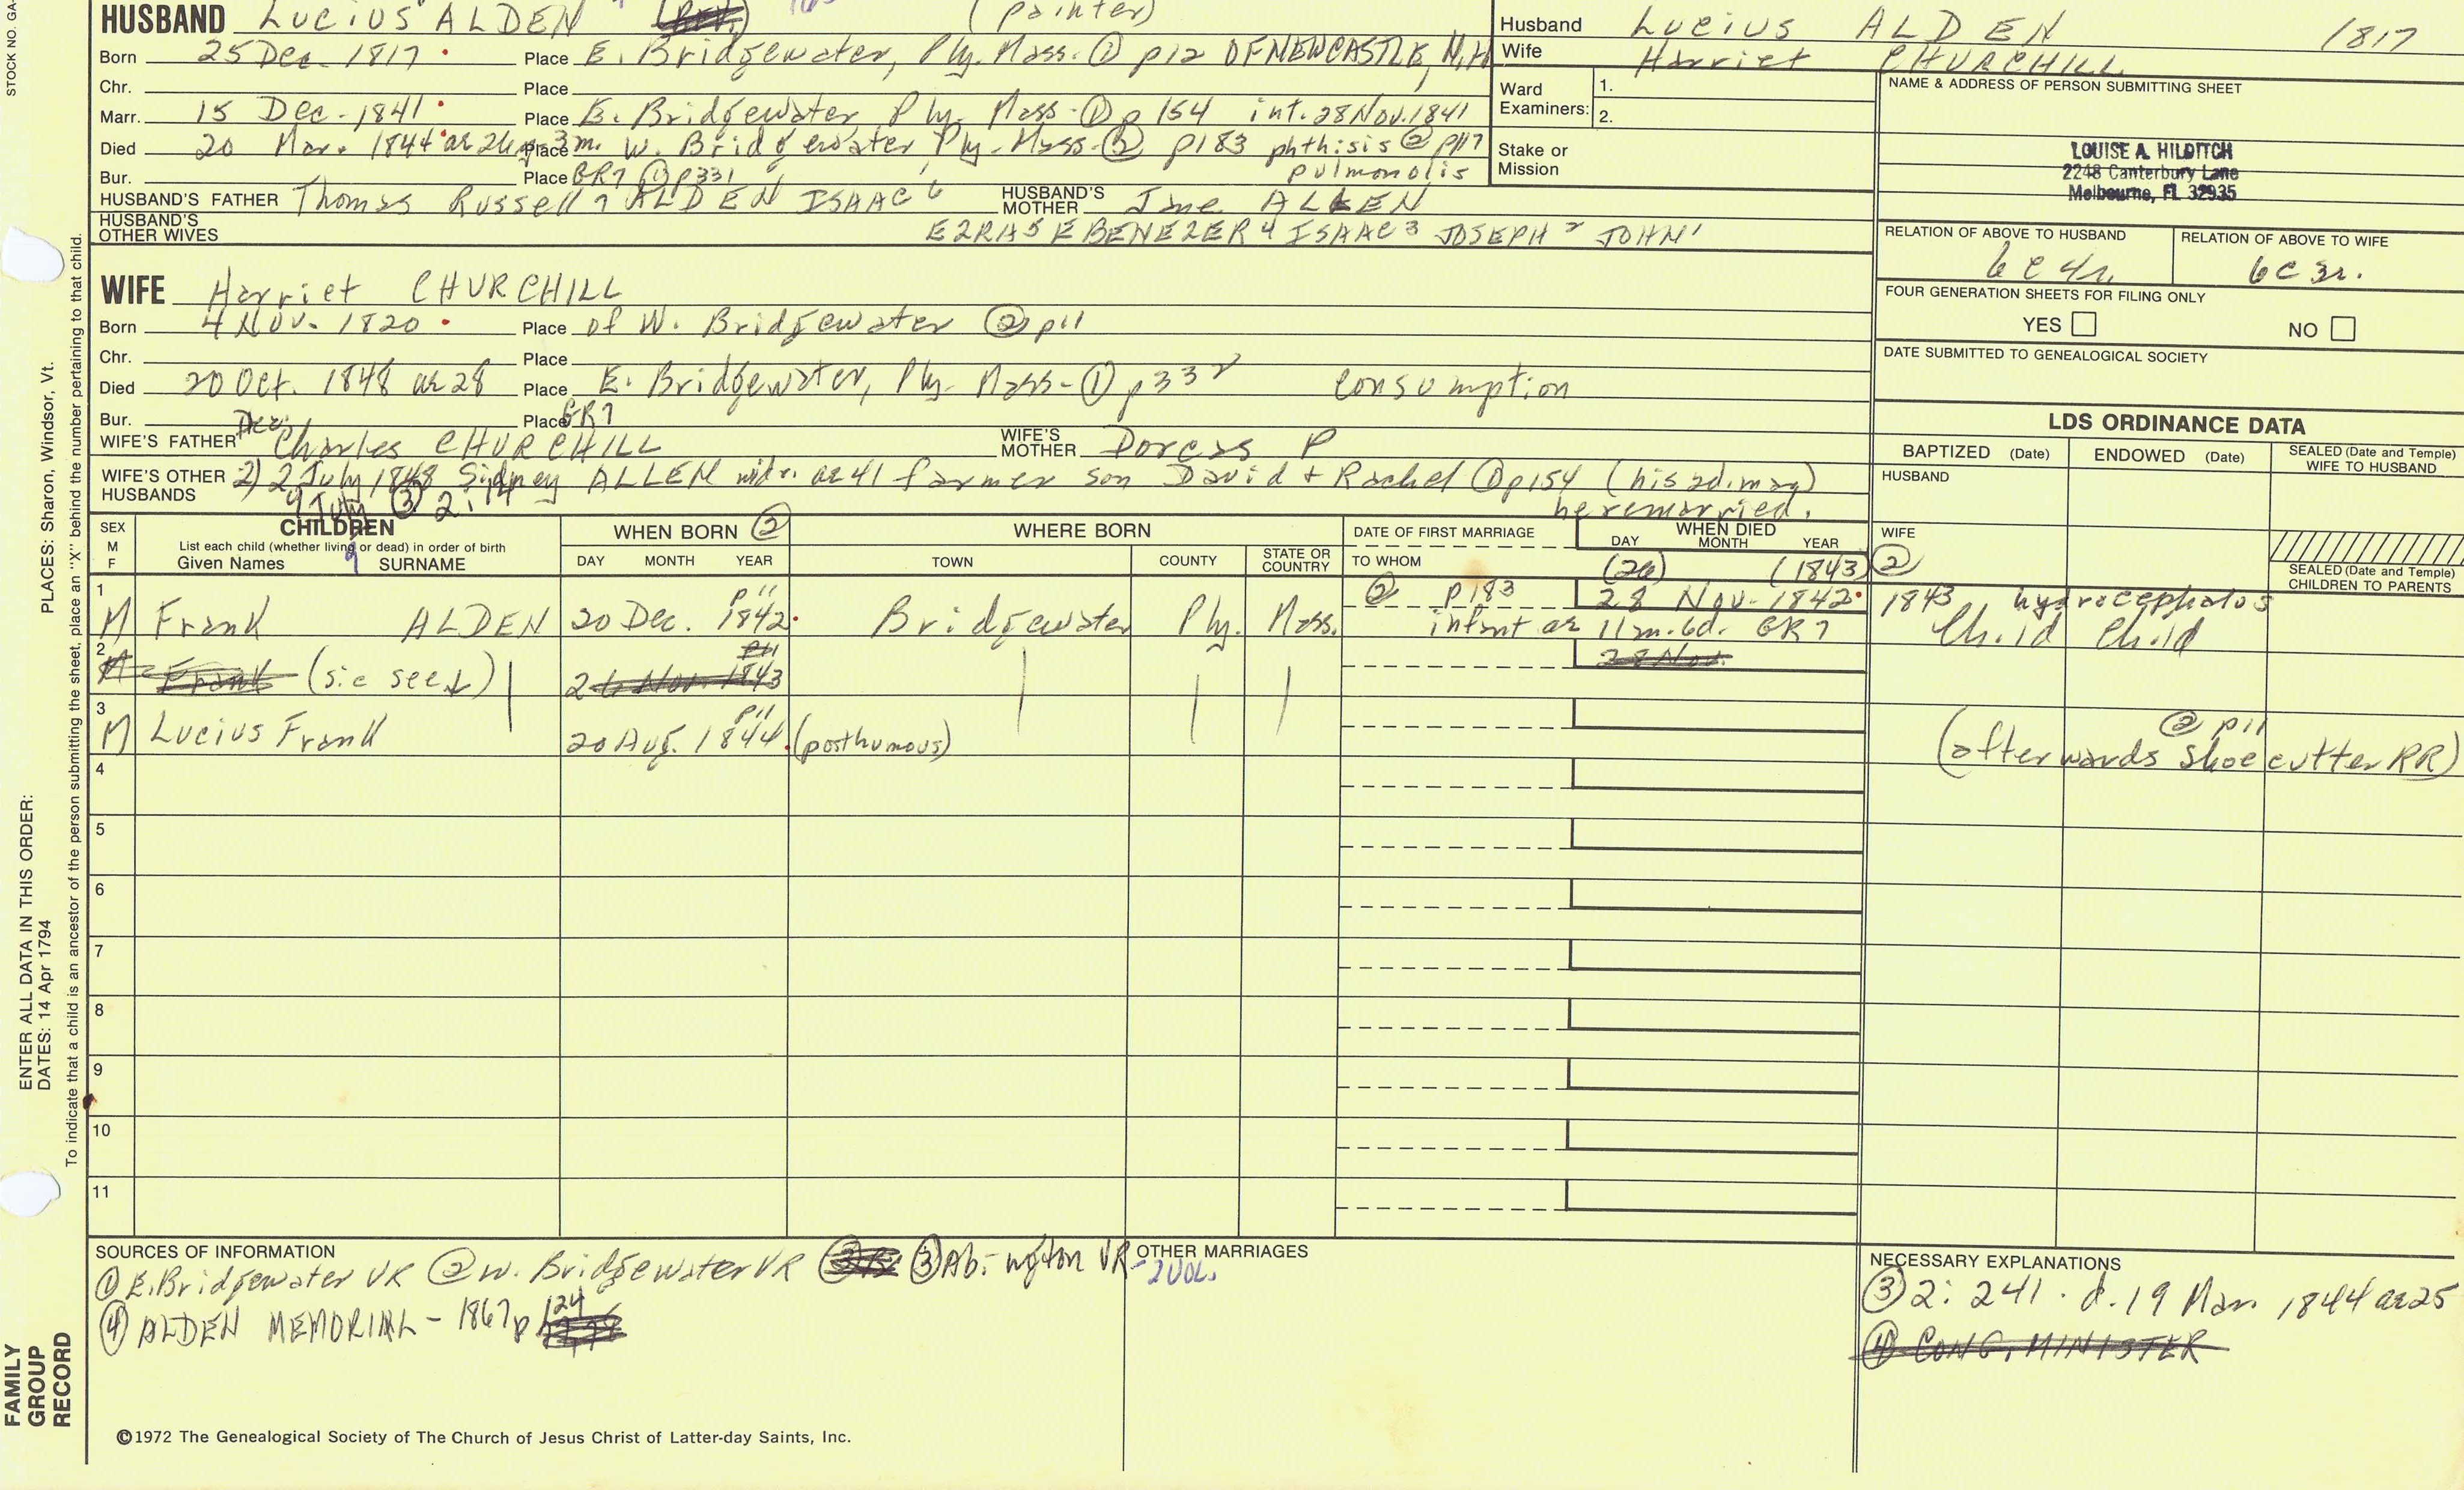 STOCK NO. GA-
PLACES: Sharon, Windsor, Vt.
ENTER ALL DATA IN THIS ORDER:
DATES: 14 Apr 1794
To indicate that a child is an ancestor of the person submitting the sheet, place an "X" behind the number pertaining to that child.
FAMILY
GROUP
RECORD
HUSBAND Lucius ALDEN (Rev.) (painter)
Born 25 Dec. 1817 Place E. Bridgewater, Ply. Mass. ① p12 OF NEWCASTLE, N.H.
Chr. Place
Marr. 15 Dec. 1841 Place E. Bridgewater Ply. Mass. ① p 154 int. 28 Nov. 1841
Died 20 Mar. 1844 ae 26y 3m. Place W. Bridgewater Ply. Mass. ② p183 phthisis @ p117
pulmonolis
Bur. Place GR7 ① p331
HUSBAND'S FATHER Thomas Russell 7 ALDEN ISAAC 6 HUSBAND'S MOTHER Jane ALLEN
HUSBAND'S OTHER WIVES EZRA 5 EBENEZER 4 ISAAC 3 JOSEPH 2 JOHN 1
WIFE Harriet CHURCHILL
Born 4 Nov. 1820 Place of W. Bridgewater ② p11
Chr. Place
Died 20 Oct. 1848 ae 28 Place E. Bridgewater, Ply. Mass. ① p332 consumption
Bur. Place GR7
WIFE'S FATHER Charles CHURCHILL WIFE'S MOTHER Dorcas P
WIFE'S OTHER HUSBANDS 2) 2 July 1848 Sidney ALLEN widr. ae 41 farmer son David + Rachel ① p154 (his 2d. mar)
9 July ③ 2:14 he remarried.
Husband Lucius ALDEN 1817
Wife Harriet CHURCHILL
Ward Examiners: 1.
2.
Stake or Mission
NAME & ADDRESS OF PERSON SUBMITTING SHEET
LOUISE A. HILDITCH
2248 Canterbury Lane
Melbourne, FL 32935
RELATION OF ABOVE TO HUSBAND RELATION OF ABOVE TO WIFE
6C 4r. 6C 3r.
FOUR GENERATION SHEETS FOR FILING ONLY
YES NO
DATE SUBMITTED TO GENEALOGICAL SOCIETY
LDS ORDINANCE DATA
BAPTIZED (Date) ENDOWED (Date) SEALED (Date and Temple) WIFE TO HUSBAND
HUSBAND
WIFE
SEALED (Date and Temple) CHILDREN TO PARENTS
SEX M F
CHILDREN
List each child (whether living or dead) in order of birth
Given Names SURNAME
WHEN BORN ②
DAY MONTH YEAR
WHERE BORN
TOWN COUNTY STATE OR COUNTRY
DATE OF FIRST MARRIAGE
TO WHOM
WHEN DIED
DAY MONTH YEAR
(26) (1843) ②
1 M Frank ALDEN 20 Dec. 1842 p11 Bridgewater Ply. Mass. ② p183 28 Nov. 1842 1843 hydrocephalos
infant ae 11m. 6d. GR7 Child Child
2 M Frank (sic see ↓) 26 Nov. 1843 p11 28 Nov.
3 M Lucius Frank 20 Aug. 1844 p11 (posthumous) ② p11
(afterwards shoe cutter RR)
4
5
6
7
8
9
10
11
SOURCES OF INFORMATION
① E. Bridgewater VR ② W. Bridgewater VR ③ Abington VR - 2 VOL.
④ ALDEN MEMORIAL - 1867 p 124
OTHER MARRIAGES
NECESSARY EXPLANATIONS
③ 2: 241. d. 19 Mar. 1844 ae 25
④ CONG. MINISTER
©1972 The Genealogical Society of The Church of Jesus Christ of Latter-day Saints, Inc.